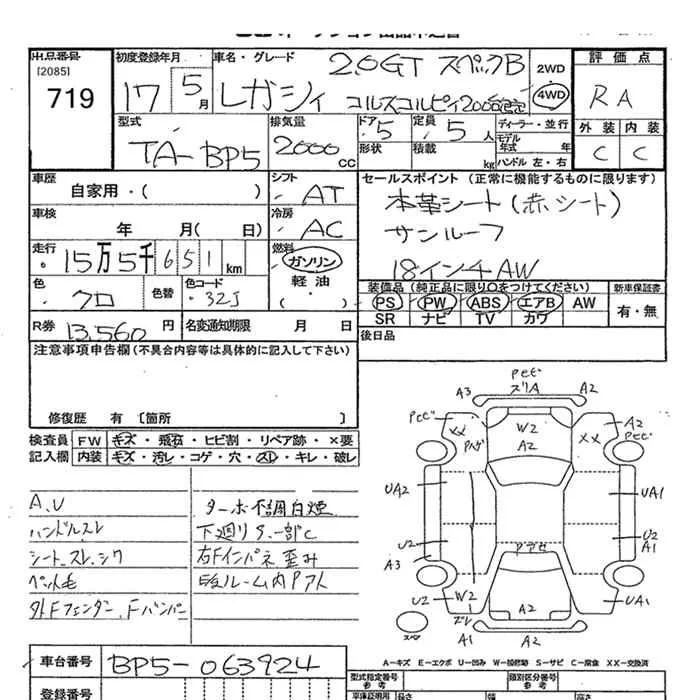 出品番号
[2085]
719
初度登録年月
17 5月
車名・グレード
2.0GT スペックB
レガシィ
2WD
4WD
評価点
RA
外装 内装
C C
型式
TA-BP5
排気量
2000 CC
ドア 5
定員 5人
形状
積載 kg
ディーラー・並行
モデル年式 年
ハンドル 左・右
車歴
自家用・( )
シフト
AT
車検
年 月( 日)
冷房
AC
走行
15万5千651 km
燃料
ガソリン
軽油
・( )
色
クロ
色替
色コード
32J
R券
13,560円
名変通知期限 月 日
セールスポイント (正常に機能するものに限ります)
本革シート(赤シート)
サンルーフ
18インチAW
装備品 (純正品に限り○をつけてください)
PS PW ABS エアB AW
SR ナビ TV カワ
新車保証書
有・無
後日品
注意事項申告欄(不具合内容等は具体的に記入して下さい)
修復歴 有 〔箇所 〕
検査員 FW キズ・飛石・ヒビ割・リペア跡・×要
記入欄 内装 キズ・汚レ・コゲ・穴・スレ・キレ・破レ
A,U
ハンドルスレ
シートスレ,シワ
ペット毛
外Fフェンダー、Fバンパー
ターボ不調白煙
下廻りS,一部C
右Fインパネ歪み
ルーム内Pアト
A3
A2
W2
A2
XX
XX
A2
UA2
UA1
U2
A3
U2
A1
U2
W2
A2
UA1
A1
A2
スペア
車台番号
BP5-063924
登録番号
A-キズ E-エクボ U-凹み W-補修跡 S-サビ C-腐食 XX-交換済
型式指定番号
参考
類別区分番号
参考
長さ
幅
高さ